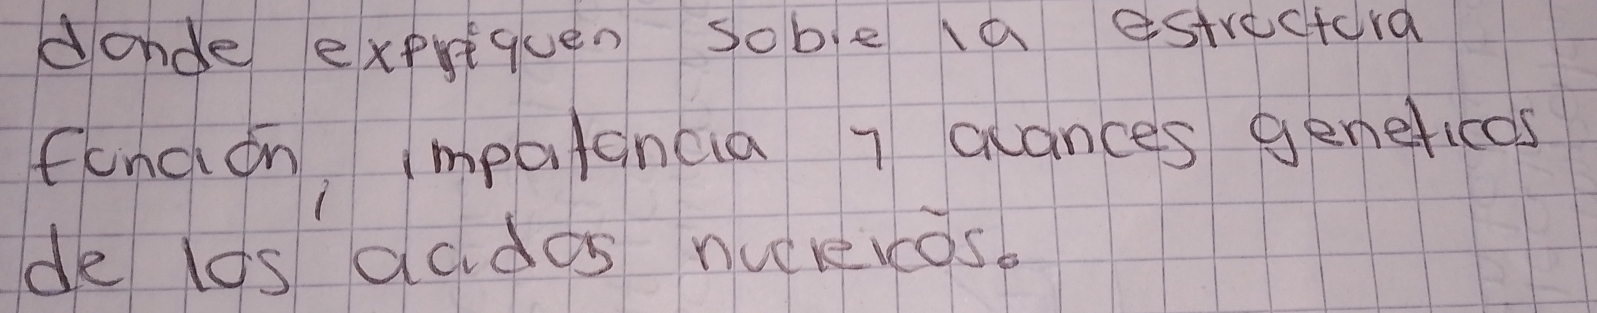 donde expliquen sobre la estructura
función, importancia y avances geneticos
de los acidos nucleicos.